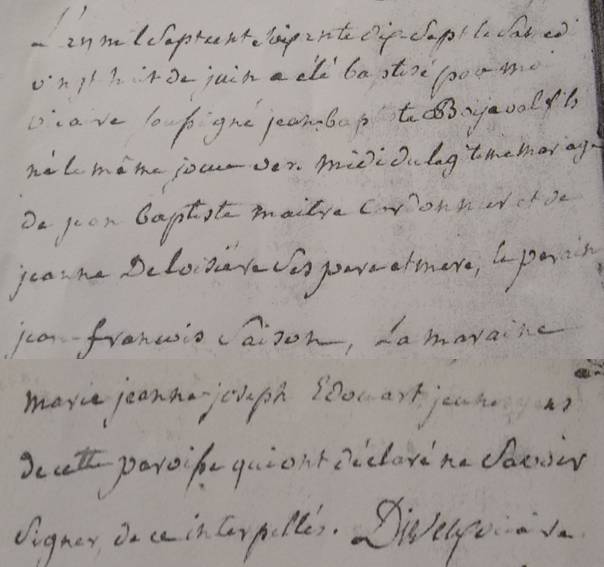 L'an mil sept cent soixante dix sept le samedi
vingt huit de juin a été baptisé par moi
vicaire soussigné jean baptiste Bojaval fils
né le même jour vers midi du légiteme mariage
de jean baptiste maitre cordonnier et de
jeanne Deloisiere ses pere et mere, le parain
jean francois Saison, La maraine
marie jeanne joseph Edouart jeunes gens
de cette paroisse qui ont déclaré ne savoir
signer, de ce interpellés. vicaire